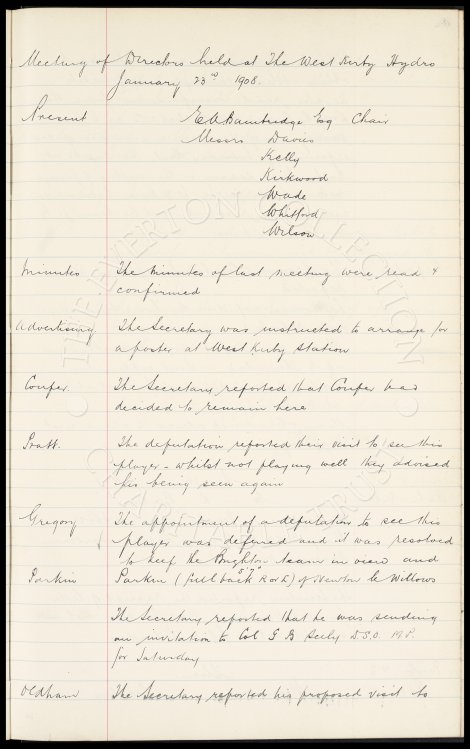 Meeting of Directors held at The West Kirby Hydro
January 23rd 1908.
Present E A Bainbridge Esq Chair
Messrs Davies
Kelly
Kirkwood
Wade
Whitford
Wilson
Minutes The Minutes of last meeting were read &
confirmed
Advertising The Secretary was instructed to arrange for
a poster at West Kirby Station
Couper. The Secretary reported that Couper had
decided to remain here
Pratt. The deputation reported their visit to see this
player - whilst not playing well they advised
his being seen again
Gregory The appointment of a deputation to see this
player was deferred and it was resolved
to keep the Brighton team in view and
Parkin Parkin (full back R or L) of Newton le Willows
The Secretary reported that he was sending
an invitation to Col G B Seely D.S.O. M.P.
for Saturday
Oldham The Secretary reported his proposed visit to
THE EVERTON COLLECTION
CHARITABLE TRUST